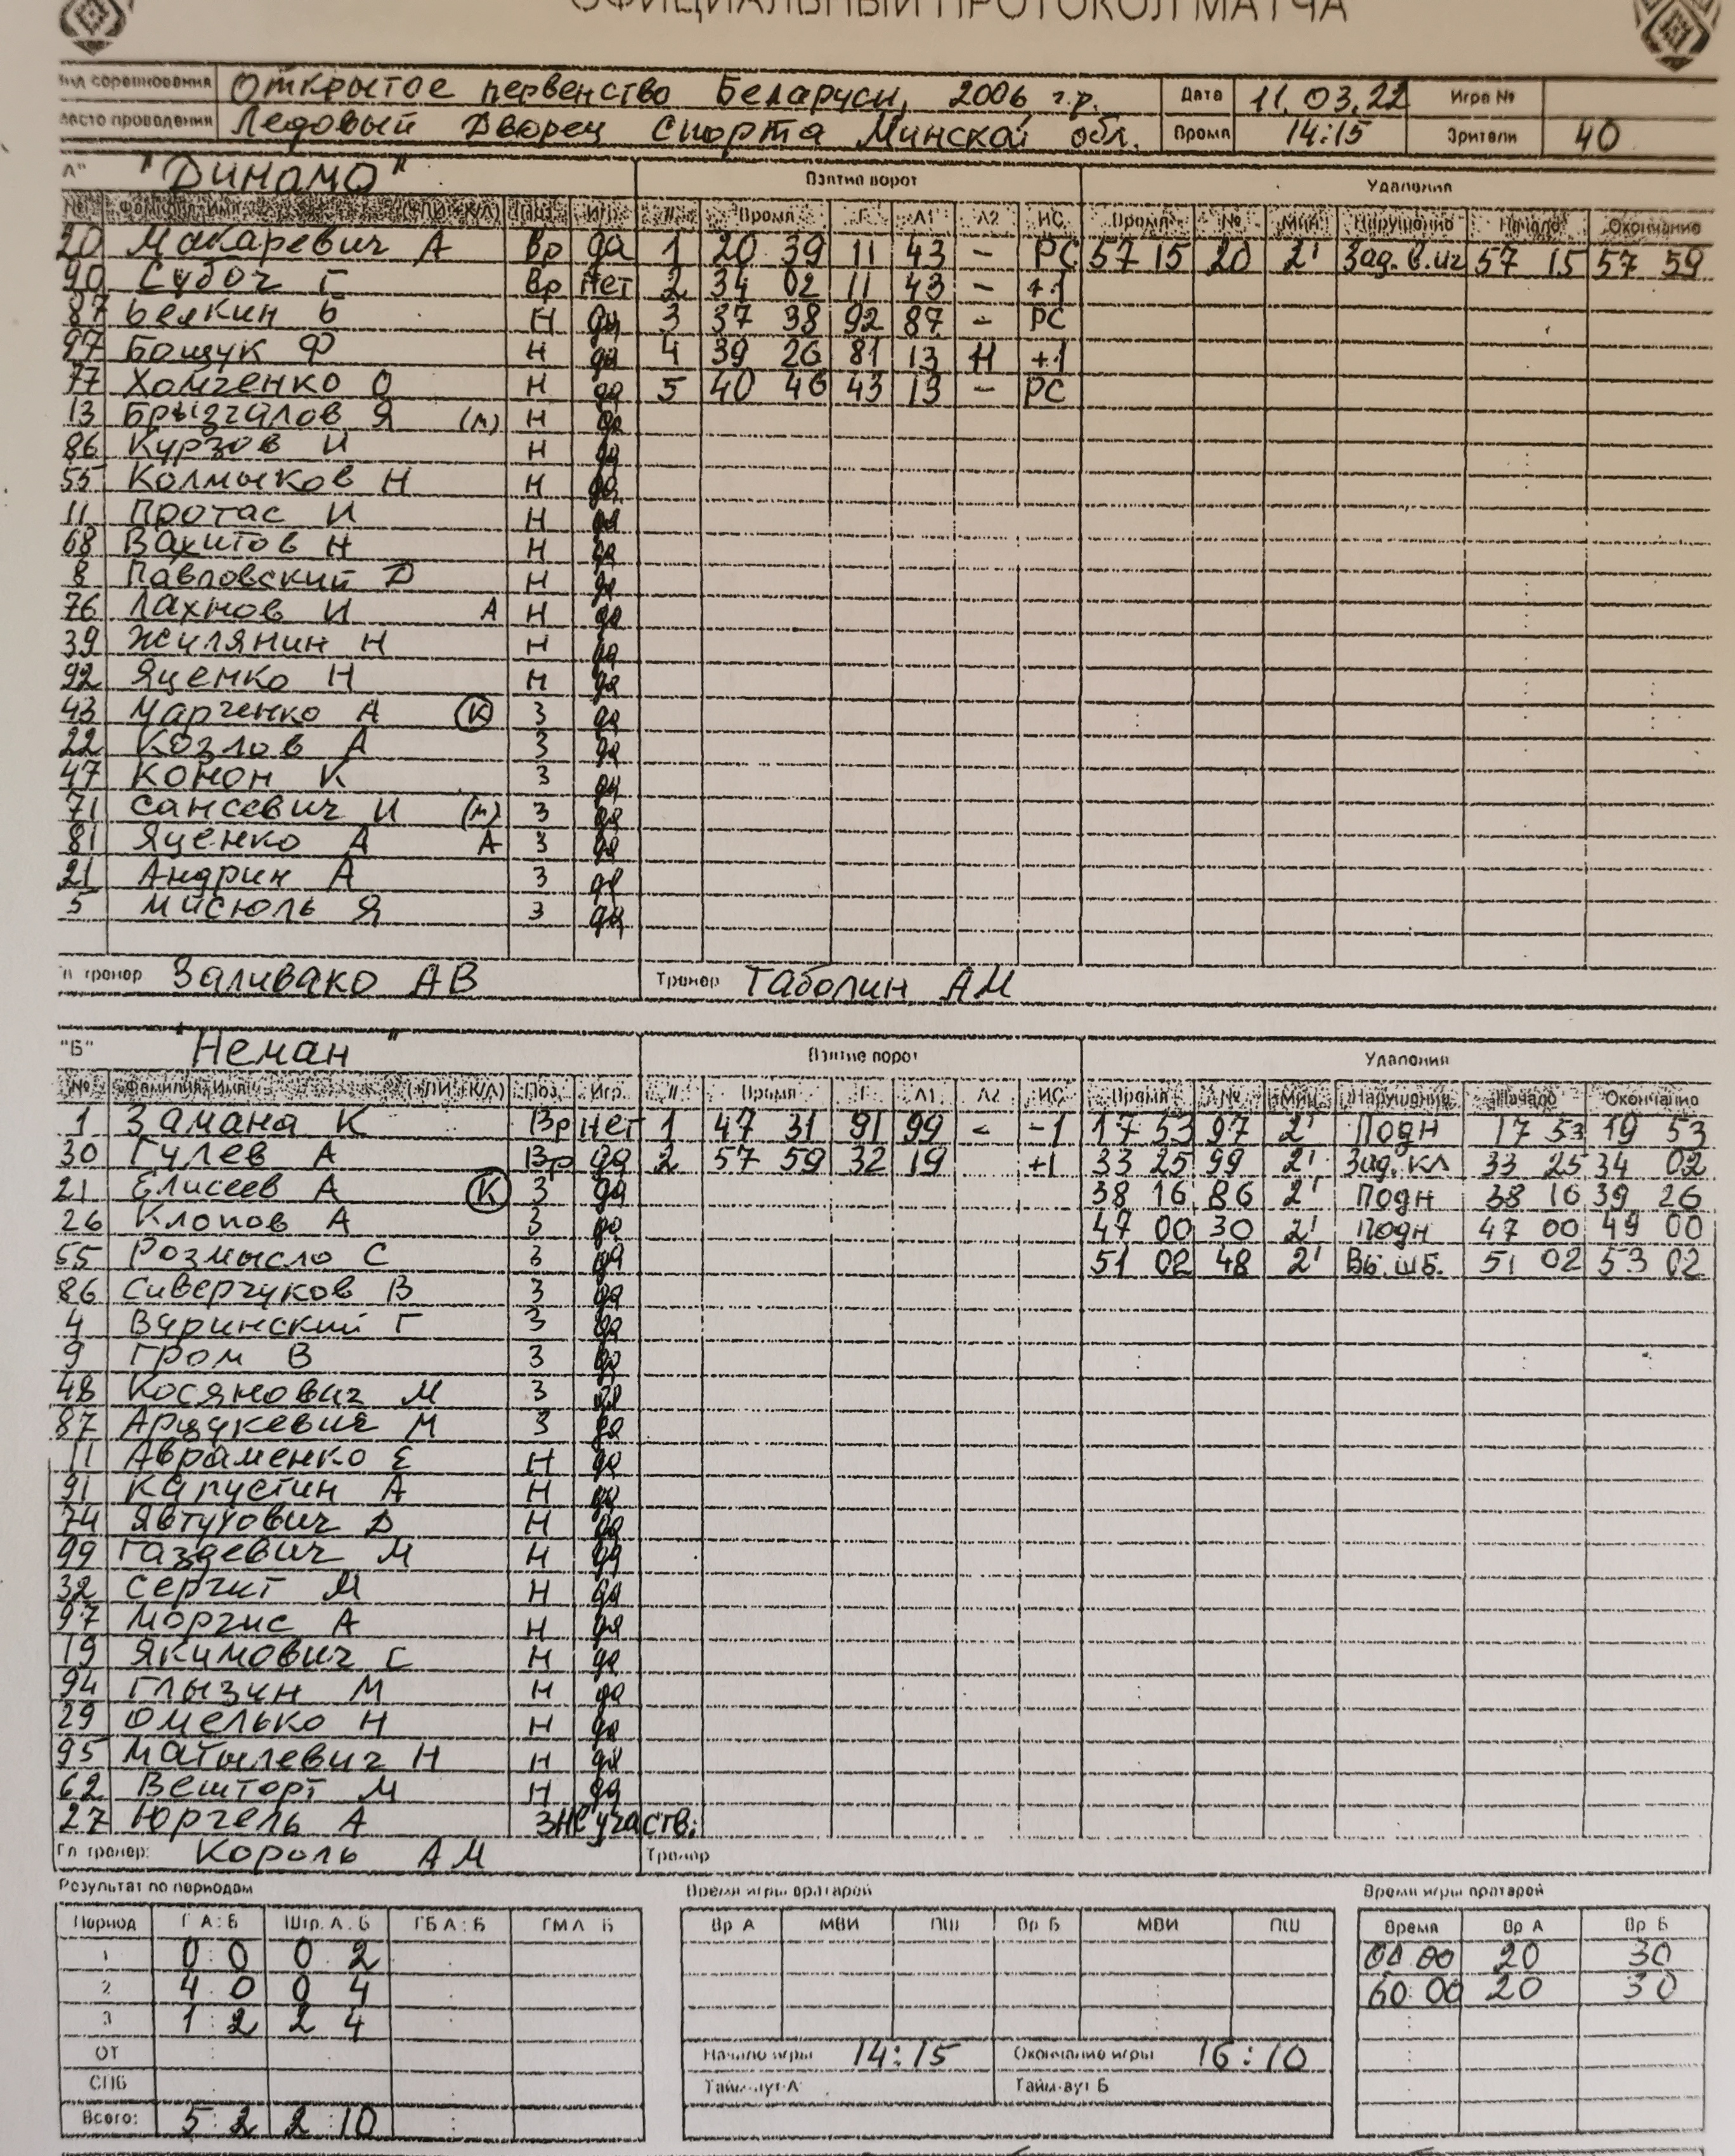 ОФИЦИАЛЬНЫЙ ПРОТОКОЛ МАТЧА
Вид соревнования Открытое первенство Беларуси, 2006 г.р. Дата 11.03.22 Игра №
Место проведения Ледовый Дворец Спорта Минской обл. Время 14:15 Зрители 40
"А" "Динамо" Взятие ворот Удаления
№ Фамилия, Имя (+ПИ +К/А) Поз Игр # Время Г А1 А2 ИС Время № Мин Нарушение Начало Окончание
20 Макаревич А Вр да 1 20 39 11 43 - РС 57 15 20 2' Зад. в. иг 57 15 57 59
90 Субоч Г Вр Нет 2 34 02 11 43 - +1
87 Белкин Б Н да 3 37 38 92 87 - РС
97 Бощук Ф Н да 4 39 26 81 13 Н +1
77 Хомченко О Н да 5 40 46 43 13 - РС
13 Брызгалов Я (м) Н да
86 Курзов И Н да
55 Колмыков Н Н да
11 Протас И Н да
68 Вахитов Н Н да
8 Павловский Д Н да
76 Лахнов И А Н да
39 Жилянин Н Н да
92 Яценко Н Н да
43 Марченко А К З да
22 Козлов А З да
47 Конон К З да
71 Сансевич И (м) З да
81 Яценко А А З да
21 Андрин А З да
5 Мисюль Я З да
Гл тренер Заливако АВ Тренер Таболин АМ
"Б" "Неман" Взятие ворот Удаления
№ Фамилия, Имя (+ПИ +К/А) Поз Игр # Время Г А1 А2 ИС Время № Мин Нарушение Начало Окончание
1 Замана К Вр нет 1 47 31 91 99 - -1 17 53 97 2' Подн 17 53 19 53
30 Гулев А Вр да 2 57 59 32 19 +1 33 25 99 2' Зад. кл 33 25 34 02
21 Елисеев А К З да 38 16 86 2' Подн 38 16 39 26
26 Клопов А З да 47 00 30 2' Подн 47 00 49 00
55 Розмысло С З да 51 02 48 2' Вы. шб. 51 02 53 02
86 Сиверчуков В З да
4 Варинский Г З да
9 Гром В З да
48 Косянович М З да
87 Арцукевич М З да
11 Авраменко Е Н да
91 Капустин А Н да
74 Явтухович Д Н да
99 Газдевич М Н да
32 Сергит М Н да
97 Моргис А Н да
19 Якимович С Н да
94 Глызин М Н да
29 Омелько Н Н да
95 Матылевич Н Н да
62 Вешторт М Н да
27 Юргель А З не участв.
Гл тренер: Король АМ Тренер
Результат по периодам Время игры вратарей Время игры вратарей
Период Г А:Б Штр. А:Б ГБ А:Б ГМ А Б Вр А МВИ ПШ Вр Б МВИ ПШ Время Вр А Вр Б
1 0:0 0 2 00 00 20 30
2 4 0 0 4 60:00 20 30
3 1:2 2 4
ОТ Начало игры 14:15 Окончание игры 16:10
СПБ Тайм-аут А Тайм-аут Б
Всего: 5:2 2:10